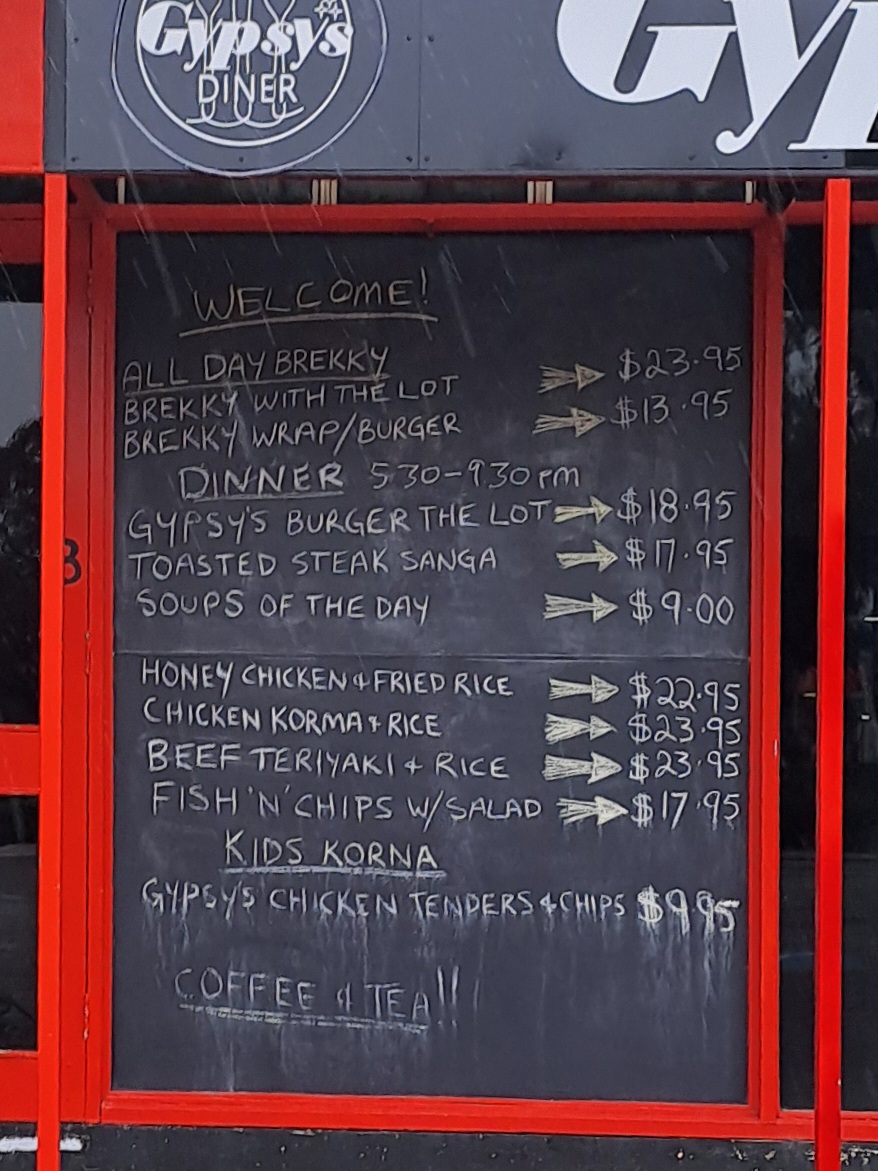 Gypsys
DINER
Gyp
WELCOME!
ALL DAY BREKKY
BREKKY WITH THE LOT $23.95
BREKKY WRAP/BURGER $13.95
DINNER 5.30-9.30pm
GYPSY'S BURGER THE LOT $18.95
TOASTED STEAK SANGA $17.95
SOUPS OF THE DAY $9.00
HONEY CHICKEN & FRIED RICE $22.95
CHICKEN KORMA & RICE $23.95
BEEF TERIYAKI & RICE $23.95
FISH 'N' CHIPS W/SALAD $17.95
KIDS KORNA
GYPSY'S CHICKEN TENDERS & CHIPS $9.95
COFFEE & TEA!!